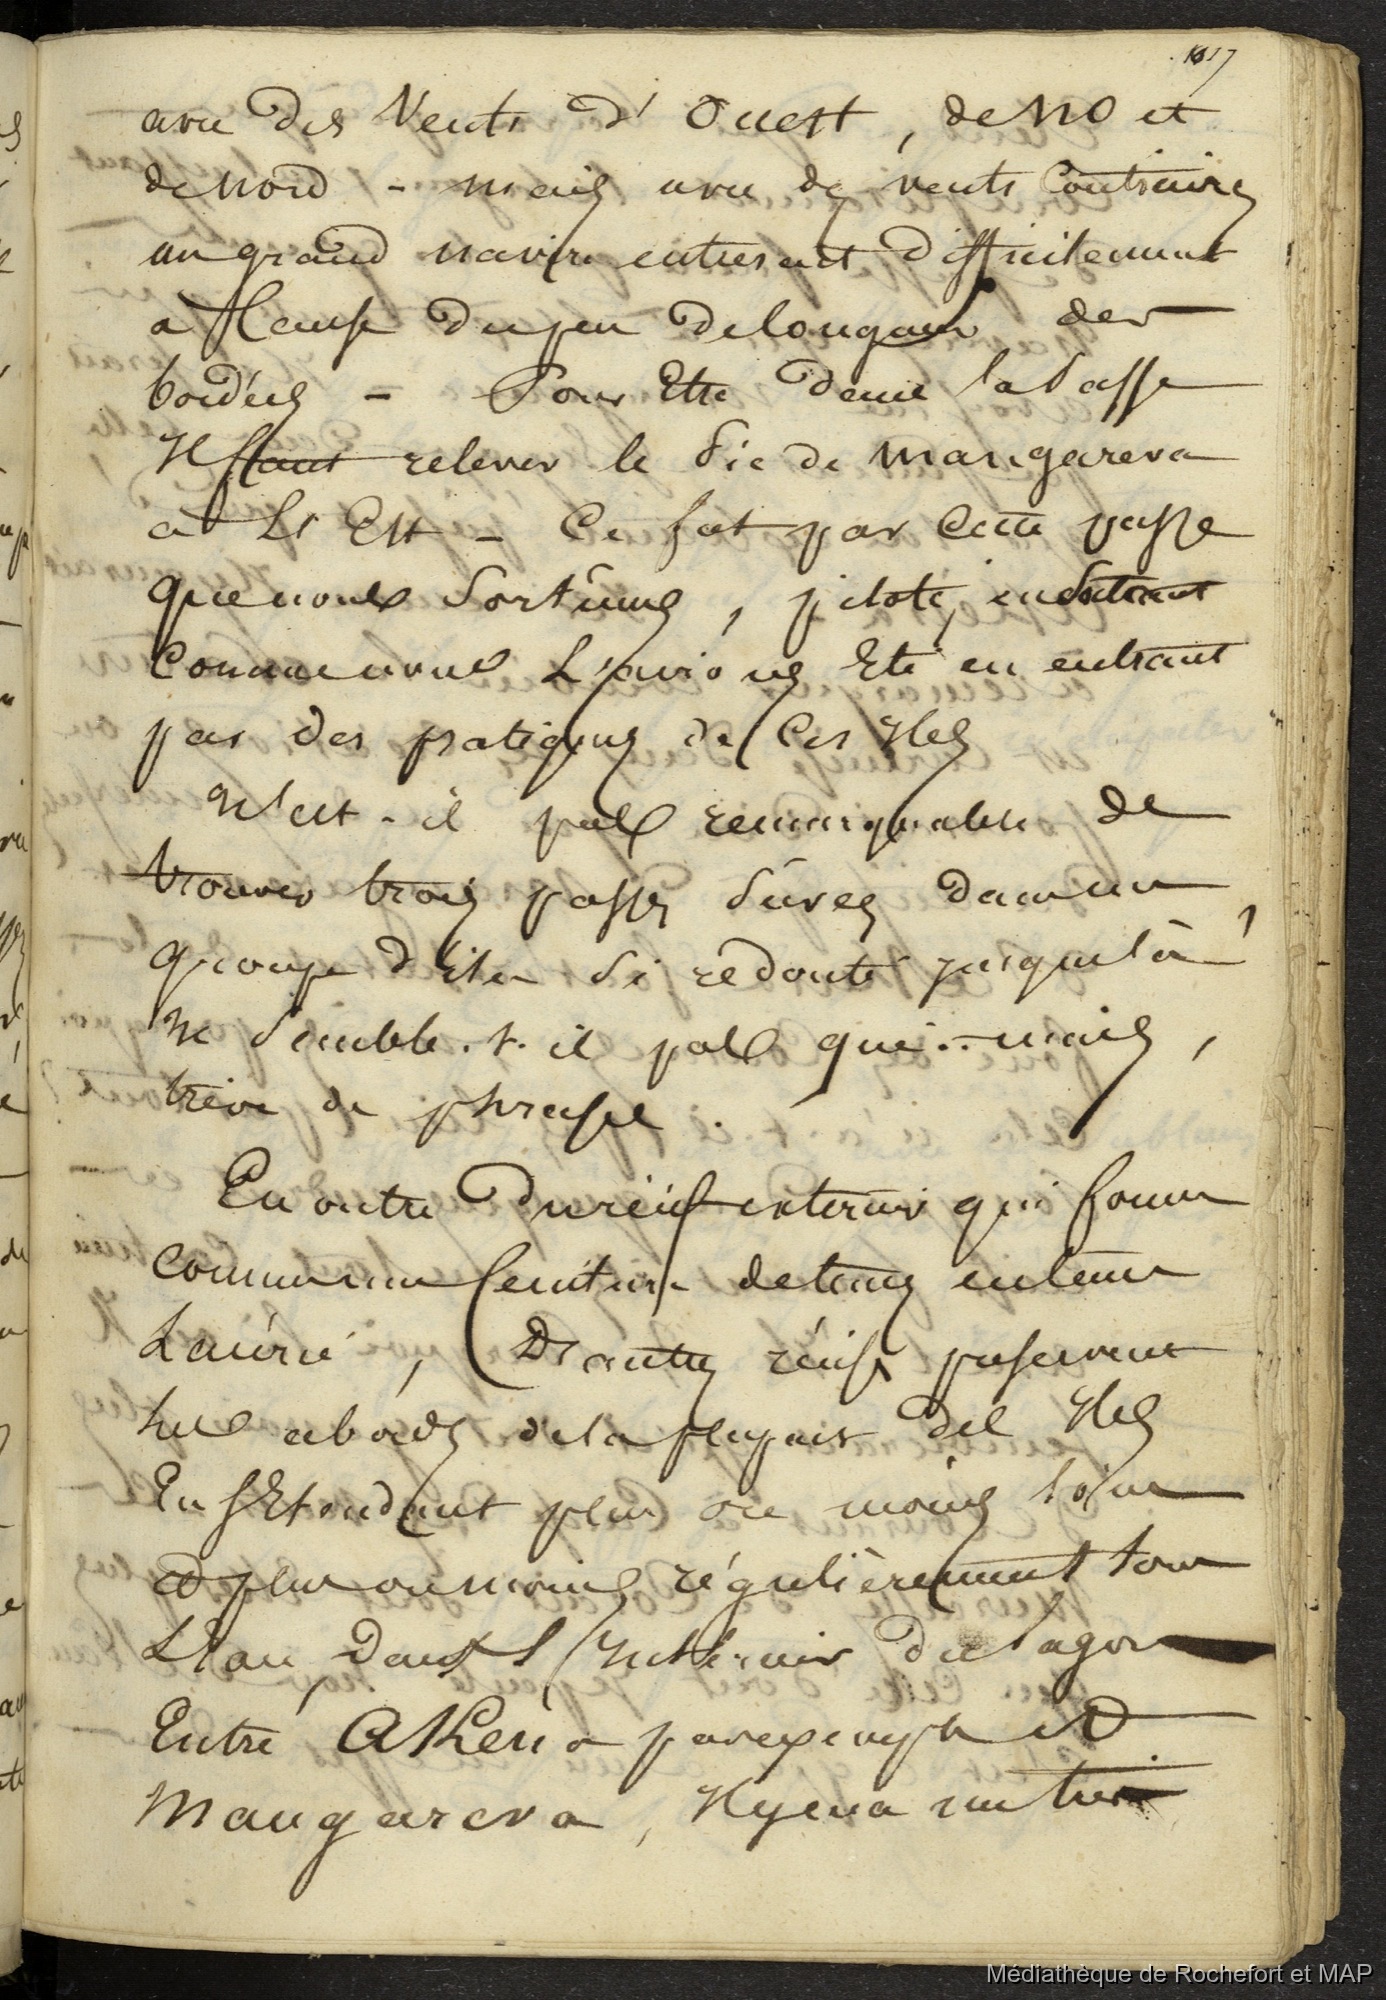 1017
avec des Vents d' Ouest, de NO et
de Nord - mais avec des vents Contraires
un grand navire entrerait difficilement
a Cause du peu de longueur des
bordées - Pour Etre dans la Passe
Il faut relever le Pic de Mangareva
à L' Est - Ce fut par Cette passe
que nous Sortîmes, piloté, en Sortant
Comme nous L'avions Eté en entrant
par des pratiques de Ces Iles
N'est-il pas remarquable de
trouver trois passes Sûres dans un
groupe d'Iles Si redouté jusque là !
Ne Semble-t-il pas que... mais,
trève de phrases.
En outre du récif extérieur qui forme
Comme une Ceinture de tours en tour
L'autre, D'autres récifs
les abords de la plupart des Iles
En S'Etendant plus ou moins loin
et plus ou moins régulièrement Sous
L'Eau, Dans L'Intérieur du lagon
Entre AKena par exemple et
Mangareva, Il y en a un très
Médiathèque de Rochefort et MAP